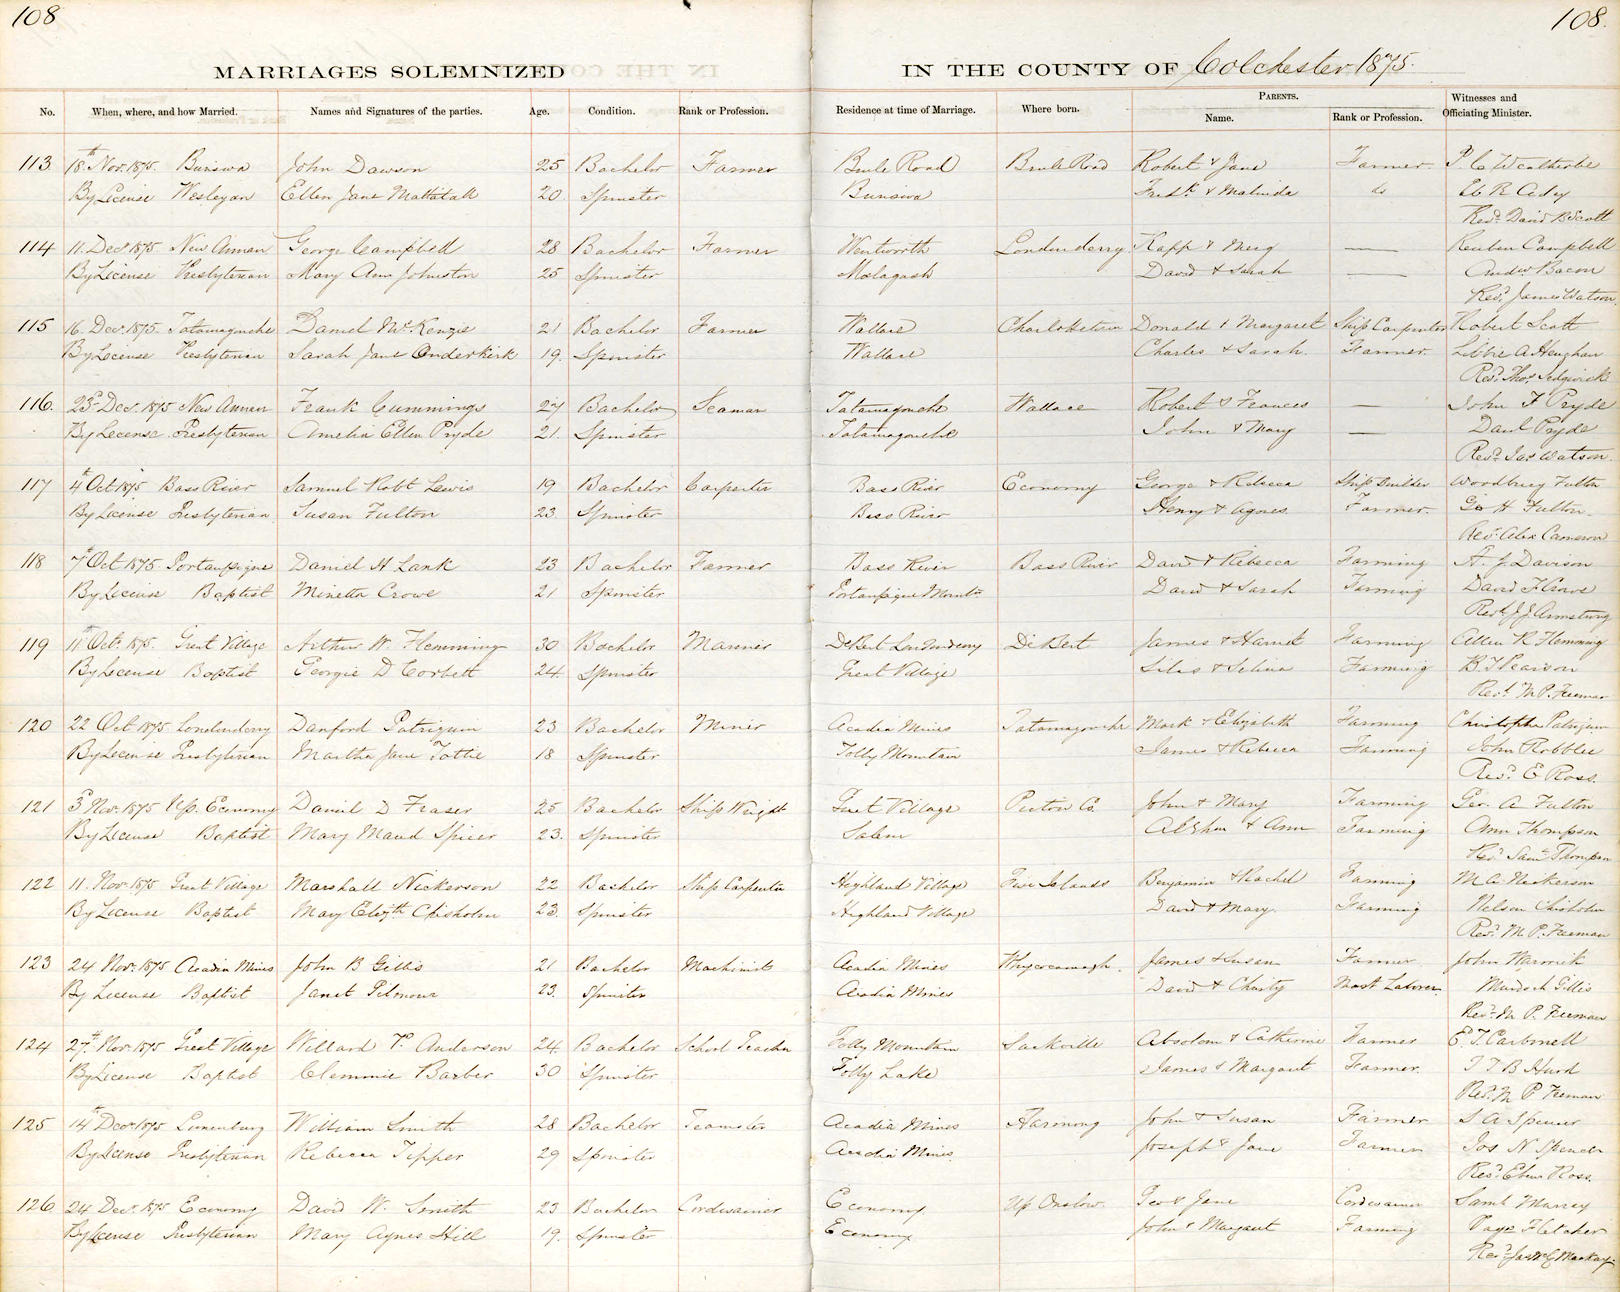 108
108.
MARRIAGES SOLEMNIZED IN THE COUNTY OF Colchester 1875.
No. When, where, and how Married. Names and Signatures of the parties. Age. Condition. Rank or Profession. Residence at time of Marriage. Where born. PARENTS. Name. Rank or Profession. Witnesses and Officiating Minister.
113 18th Nov. 1875. John Dawson 25 Bachelor Farmer Brule Road Brule Road Robert & Jane Farmer
By License Wesleyan Ellen Jane Mattatall 20 Spinster Fredk & Malinda do
Revd. David B Scott
114 11. Dec 1875 New Annan George Campbell 28 Bachelor Farmer Wentworth Londonderry & Meig — Reuben Campbell
By License Presbyterian Mary Ann Johnston 25 Spinster Malagash David & Sarah — Andw Bacon
Revd. James Watson
115 16. Dec. 1875. Tatamagouche Daniel McKenzie 21 Bachelor Farmer Wallace Charlottetown Donald & Margaret Ship Carpenter Robert Scott
By License Presbyterian Sarah Jane Onderkirk 19. Spinster Wallace Charles & Sarah. Farmer. Libbie A
Revd. Thos. Sedgwick
116. 23d Dec. 1875 New Annan Frank Cummings 27 Bachelor Seaman Tatamagouche Wallace Robert & Frances — John F Pryde
By License Presbyterian Amelia Ellen Pryde 21. Spinster Tatamagouche John & Mary — Danl Pryde
Revd. Jas Watson.
117 4th Oct 1875 Bass River Samuel Robt Lewis 19 Bachelor Carpenter Bass River Economy George & Rebecca Ship builder Woodbury Fulton
By License Presbyterian Susan Fulton 23. Spinster Bass River Henry & Agnes Farmer. Geo H Fulton.
Revd. Alex Cameron
118 7th Oct 1875 Portaupique Daniel H Lank 23 Bachelor Farmer Bass River Bass River David & Rebecca Farming A. J. Davison
By License Baptist Minetta Crowe 21 Spinster Portaupique Mountn David & Sarah Farming David F Crowe
Revd. J J Armstrong
119 11th Oct. 1875. Great Village Arthur W. Flemming 30 Bachelor Mariner DeBert Londonderry DeBert James & Harriet Farming Allen R Flemming
By License Baptist Georgie D Corbett 24. Spinster Great Village Silas & Selina Farming B. T Pearson
Revd. M. P. Freeman
120 22 Oct 1875 Londonderry Danford Patriquin 23 Bachelor Miner Acadia Mines Tatamagouche Mark & Elizabeth Farming Christopher Patriquin
By License Presbyterian Martha Jane Tottie 18 Spinster Folly Mountain James & Rebecca Farming John Robblee
Revd. E Ross.
121 3d Nov. 1875 Up. Economy Daniel D Fraser 25 Bachelor Ship Wright Great Village Pictou Co. John & Mary Farming Geo. A Fulton
By License Baptist Mary Maud Spicer 23. Spinster Salem & Ann Farming Ann Thompson
Revd. Saml Thompson
122 11. Nov. 1875 Great Village Marshall Nickerson 22 Bachelor Ship Carpenter Highland Village Five Islands Benjamin & Rachel Farming M. A. Nickerson
By License Baptist Mary Elizth Chisholm 23. Spinster Highland Village David & Mary. Farming Nelson Chisholm
Revd. M. P. Freeman
123 24 Nov. 1875 Acadia Mines John B Gillis 21 Bachelor Machinist Acadia Mines Whycocomagh. James & Susan Farmer John Warnick
By License Baptist Janet Gilmour 23. Spinster Acadia Mines David & Christy Mast Laborer. Murdoch Gillis
Revd. M. P. Freeman
124 27th. Nov. 1875 Great Village Willard T. Anderson 24. Bachelor School Teacher Folly Mountain Sackville Absolom & Catherine Farmer E. T. Carbonell
By License Baptist Clemmie Barber 30 Spinster Folly Lake James & Margaret Farmer. T T B Hurd
Revd. M P Freeman
125 14th Dec. 1875 William Smith 28 Bachelor Teamster Acadia Mines Harmony John & Susan Farmer S A Spencer
By License Presbyterian Rebecca Tipper 29 Spinster Acadia Mines. Joseph & Jane Farmer Jos N Spencer
Revd. Eben Ross.
126 24 Dec. 1875 Economy David W. Smith 23 Bachelor Cordwainer Economy Up Onslow. Geo & Jane Cordwainer Saml Murray
By License Presbyterian Mary Agnes Hill 19. Spinster Economy John & Margaret Farming Faye Fletcher
Revd. Jas McG McKay.